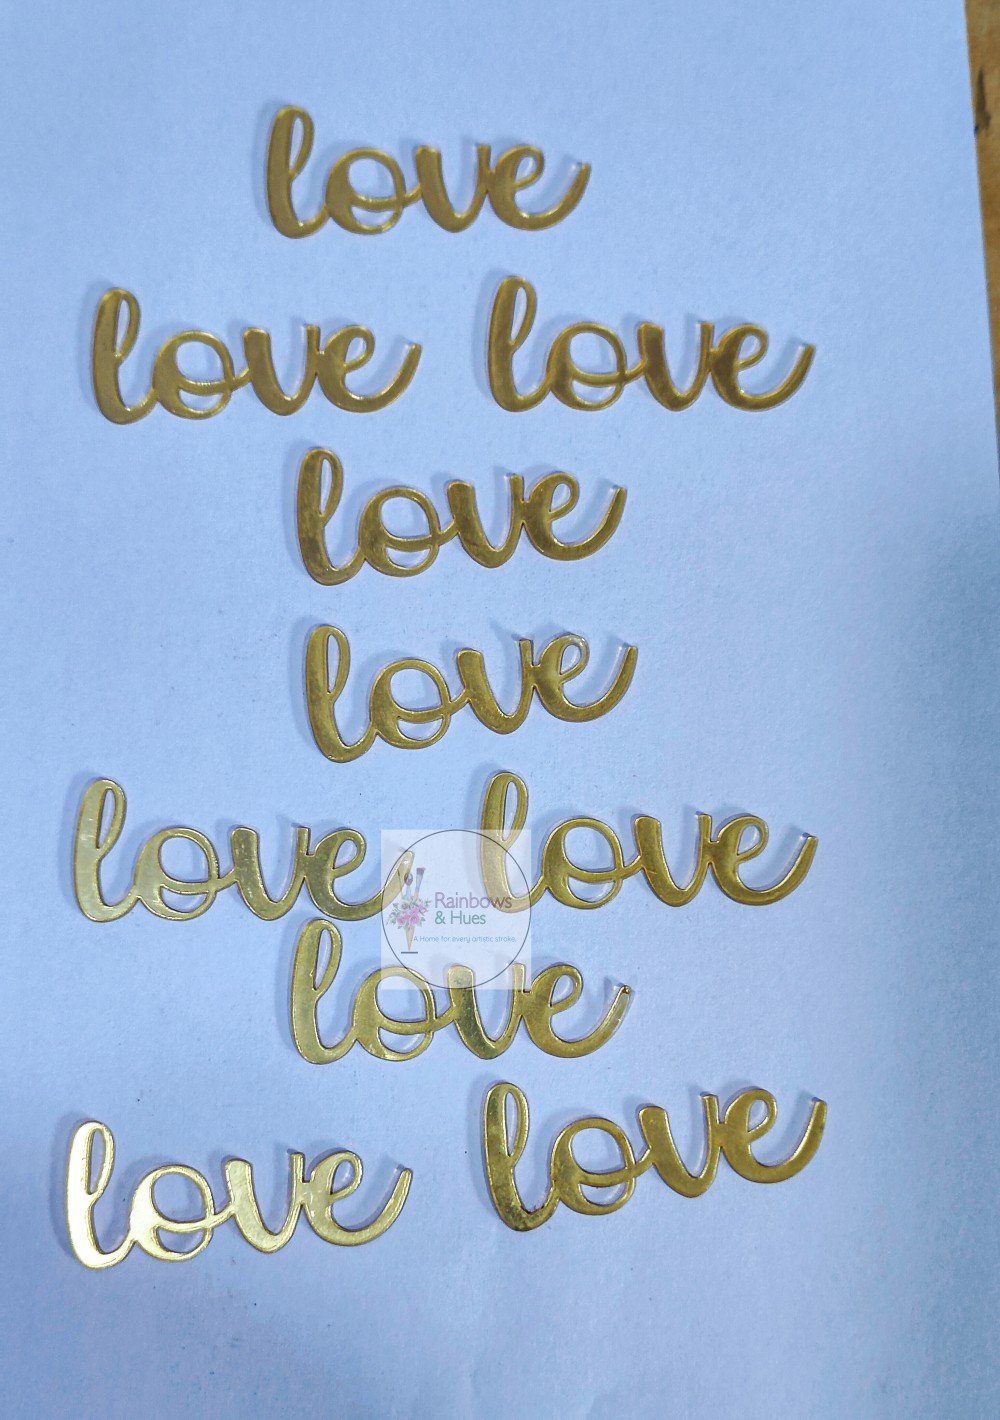 love
love love
love
love
love love
Rainbows
& Hues
A Home for every artistic stroke.
love
love love